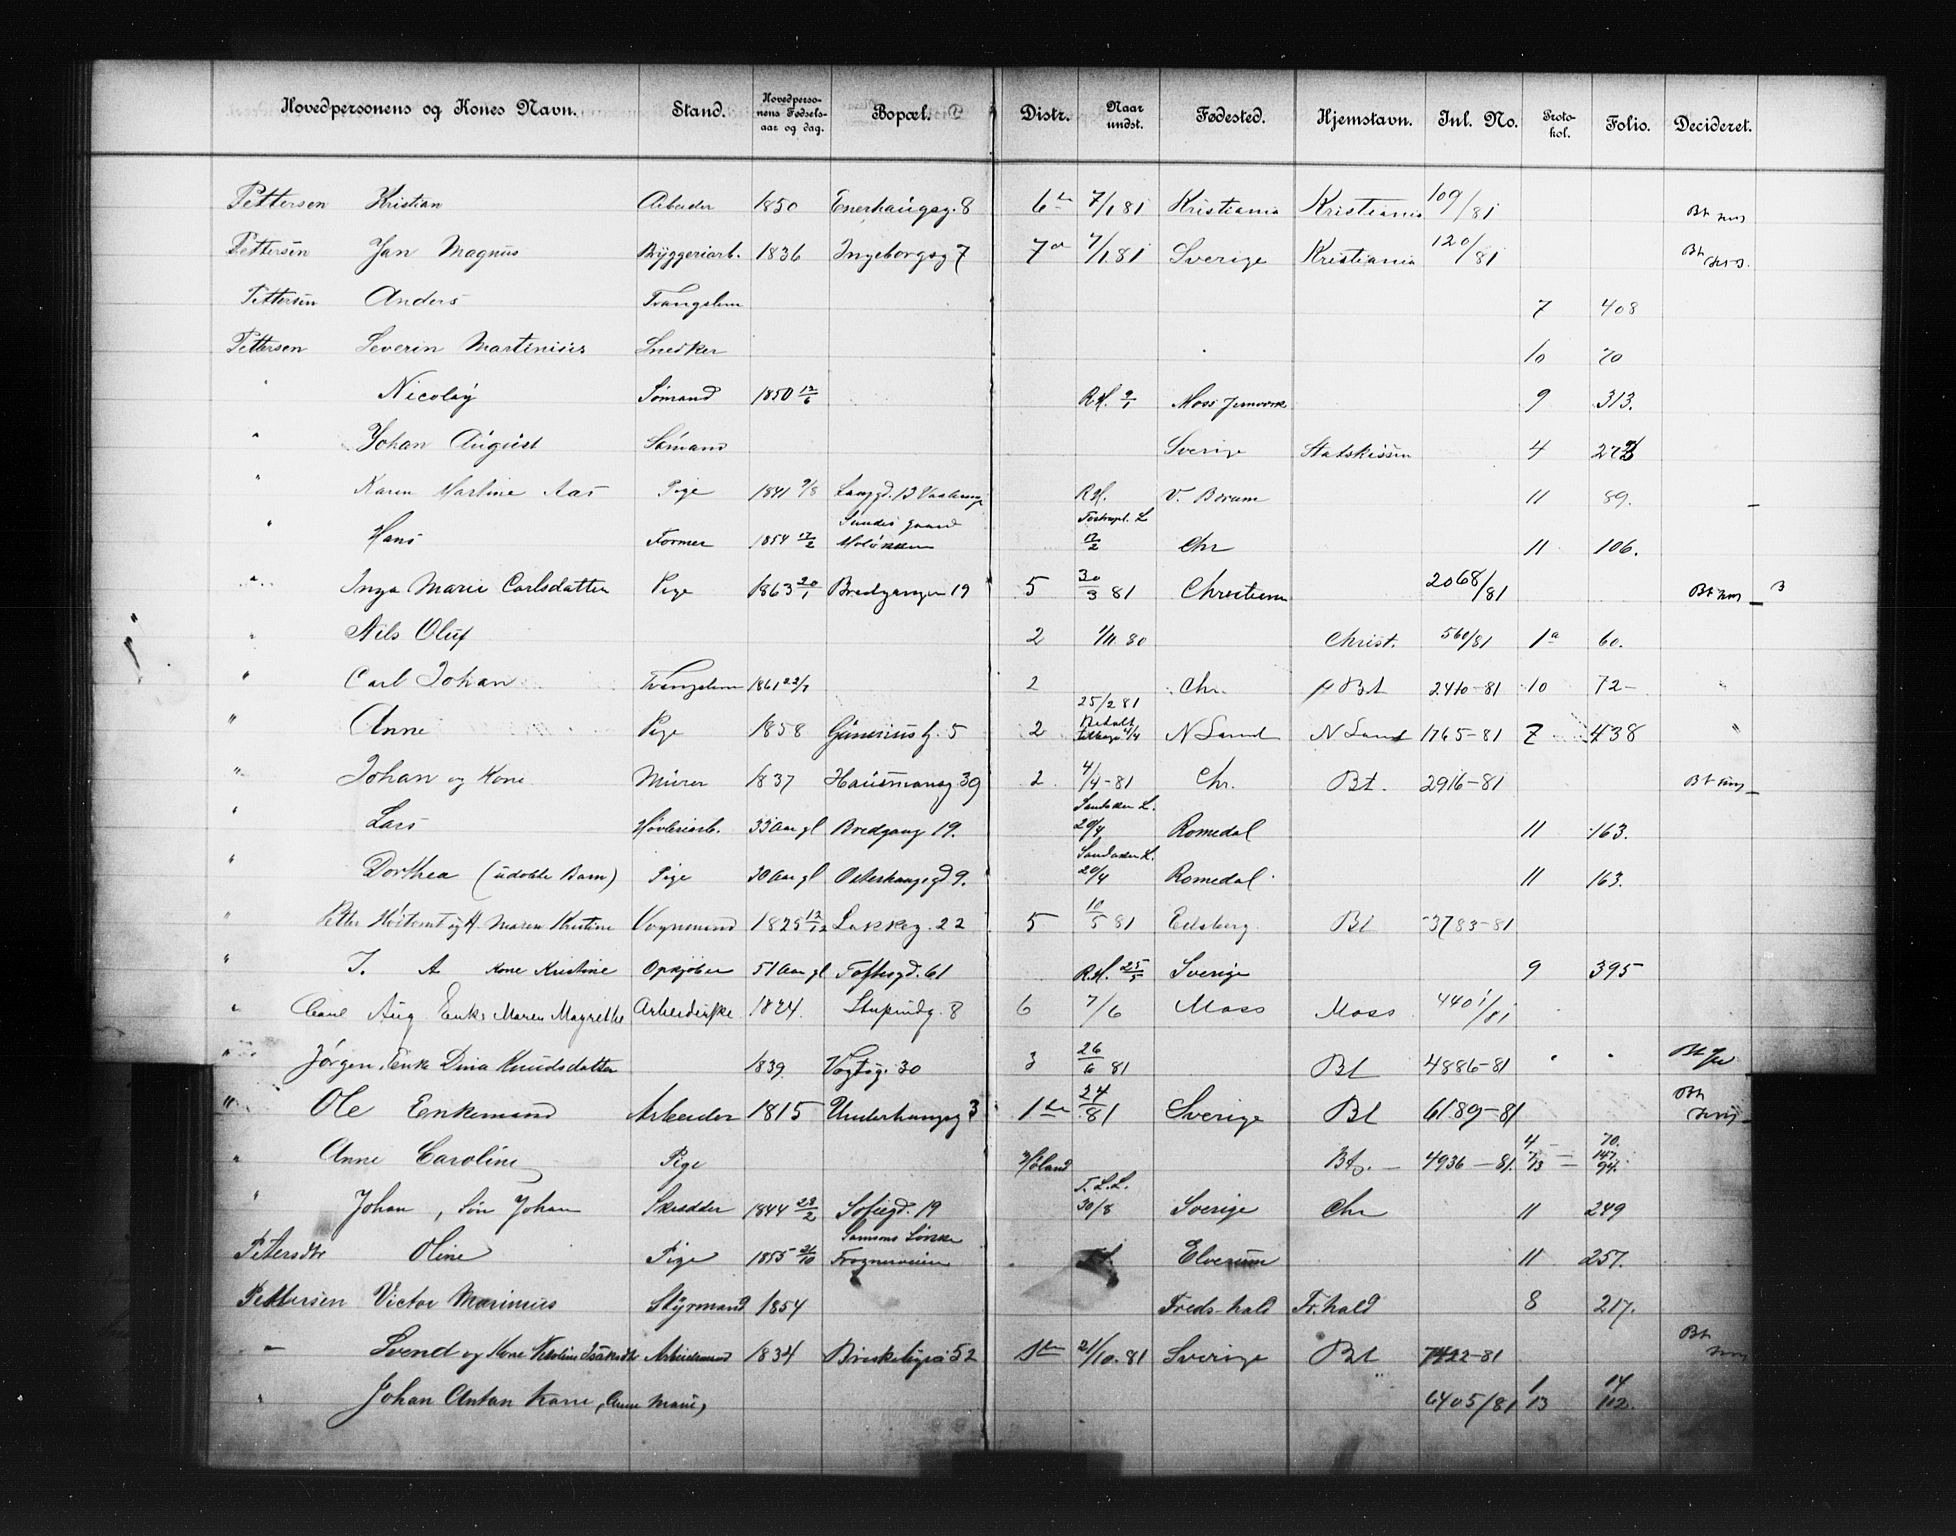 Hovedpersonens og Kones Navn. Stand. Hovedperso-nens Fødsels-aar og dag. Bopæl. Distr. Naar undst. Fødested. Hjemstavn. Inl. No. Proto-kol. Folio. Decideret.
Pettersen Kristian Arbeider 1850 Enerhaugsg. 8 6te 7/1 81 Kristiania Kristiania 109/81 Bt
Pettersen Jan Magnus Bryggeriarb. 1836 Ingeborgsg 7 7de 7/1 81 Sverige Kristiania 120/81 Bt
Pettersen Anders Tvangslem 7 408
Pettersen Severin Martinius Snedker 10 70
" Nicolay Sømand 1850 12/6 R.H. 9/1 Moss Jernverk 9 313.
" Johan August Sømand Sverige Statskassen 4 272
" Karen Martine Aas Pige 1841 9/8 Langgd. 13 R.H. V. Bærum 11 89.
" Hans Former 1854 17/2 gaard 17/2 Chr 11 106.
" Inga Marie Carlsdatter Pige 1863 20/1 Bredgangen 19 5 30/3 81 Christiania 2068/81 Bt
" Nils Oluf 2 1/11 80 Christ. 560/81 1a 60.
" Carl Johan Tvangslem 1861 22/7 2 Chr. Bt 2410-81 10 72- "
" Anne Pige 1858 Gunerius g. 5 2 25/2 81 Betalt N Land N Land 1765-81 7 438 "
" Johan og Kone Murer 1837 Hausmansg 39 2. 4/4-81 Chr. Bt. 2916-81 Bt
" Lars Høvleriarb. 33 Aar gl Bredgang 19. Sandaker L. 20/4 Romedal 11 163.
" Dorthea (udøbte Barn) Pige 30 Aar gl Østerhausgd 9. Sandaker L. 20/4 Romedal 11 163.
" Petter Maren Kristine Vognmand 1825 12/12 Lakkeg. 22 5 10/5 81 Eidsberg Bt 3783-81
" J. A Kone Kristine Opkjøber 51 Aar gl Toftesgd. 61 R.H. 25/5 Sverige 9 395
" Carl Aug Enke Maren Magrethe Arbeiderske 1824. Stupindg. 8 6 7/6 Moss Moss 4401/81
" Jørgen, Enke Dina Knudsdatter 1839 Vogtsg. 30 3 26/6 81 Bt 4886-81 Bt
" Ole Enkemand Arbeider 1815 Underhaugsg 3 1ste 24/81 Sverige Bt 6189-81 Bt
" Anne Caroline Pige Høland Bt. - 4936-81. 4 7/13 70. 147. 94.
" Johan, Søn Johan Skrædder 1844 23/2 Sofiegd. 19 T. L.L. 30/8 Sverige Chr 11 249
Petersdtr Oline Pige 1855 21/10 Samsons Løkke Frognerveien Elverum 11 257.
Pettersen Victor Marinius Styrmand 1854 Freds-hald Fr.hald 8 217.
" Svend og Kone Arbeidsmand 1834 Briskebyvei 52 1ste 21/10.81 Sverige Bt 7422-81 Bt
" Johan Antan Kone, Anne Marie, 6405/81 1/13 14 112.